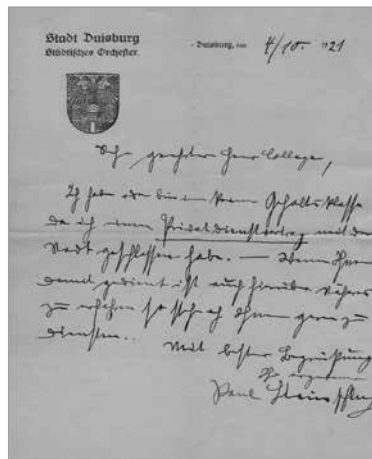 Stadt Duisburg
Städtisches Orchester.
Duisburg, den 4/10. 1921
Sehr geehrter Herr College,
Ich habe oder bin in keiner Gehaltsklasse
da ich einen Privatdienstvertrag mit der
Stadt geschlossen habe. — Wenn Ihnen
damit gedient ist auch hierüber Näheres
zu erfahren so steh ich Ihnen gern zu
Diensten.
Mit bester Begrüßung
Ihr ergebener
Paul